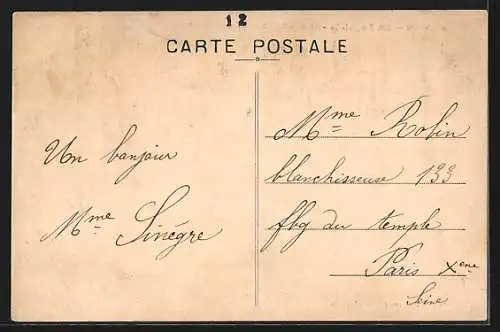 12
CARTE POSTALE
Un banjour
Mme Sinègre
Mme Robin
blanchisseuse 133
fbg du temple
Paris Xeme
Seine